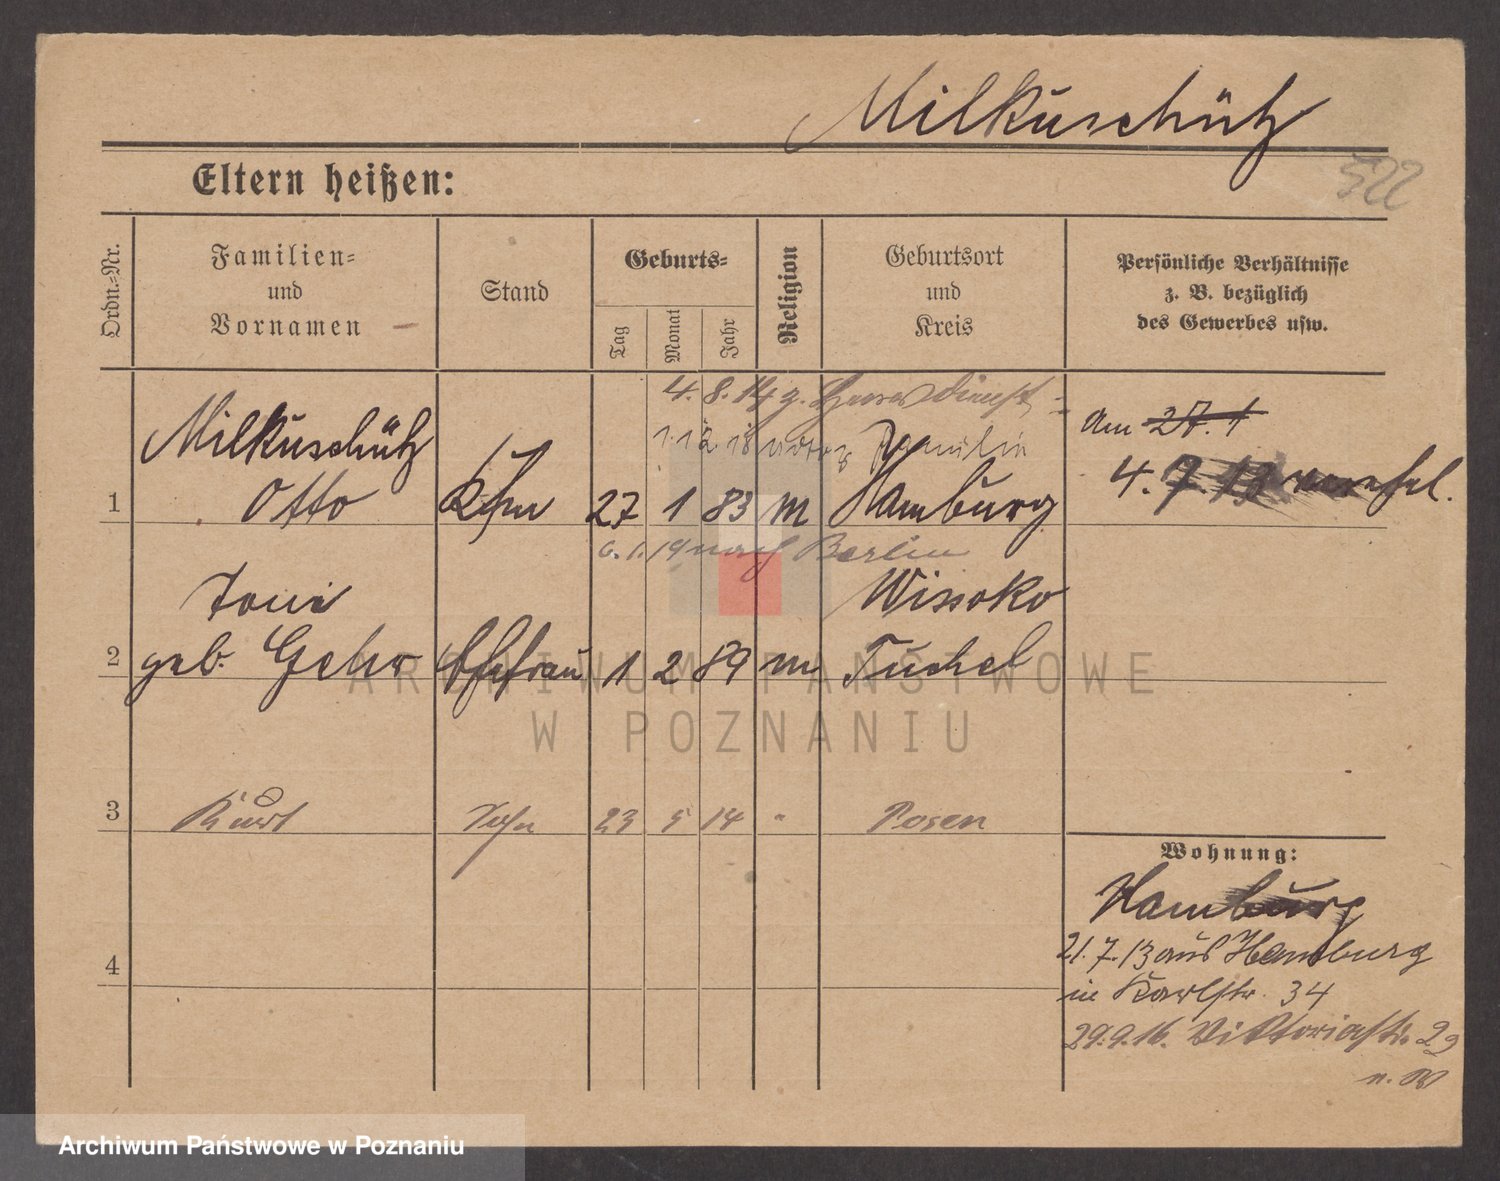 Milkuschütz
522
Eltern heißen:
Ordn.-Nr.
Familien-
und
Vornamen
Stand
Geburts-
Tag
Monat
Jahr
Religion
Geburtsort
und
Kreis
Persönliche Verhältnisse
z. B. bezüglich
des Gewerbes usw.
4. 8. 14 z. Heeresdienst
1. 12. 18 Familie
Milkuschütz
1 Otto Kfm 27 1 83 m Hamburg
am 27. 1
4. 7. 13
6. 1. 19 nach Berlin
Toni Wissoko
2 geb. Gehr Ehefrau 1 2 89 m Tuchel
ARCHIWUM PAŃSTWOWE
W POZNANIU
3 Kurt Sohn 23 5 14 " Posen
4
Wohnung:
Hamburg
21. 7. 13 aus Hamburg
in Karlstr. 34
29. 9. 16. Viktoriastr. 29
Archiwum Państwowe w Poznaniu